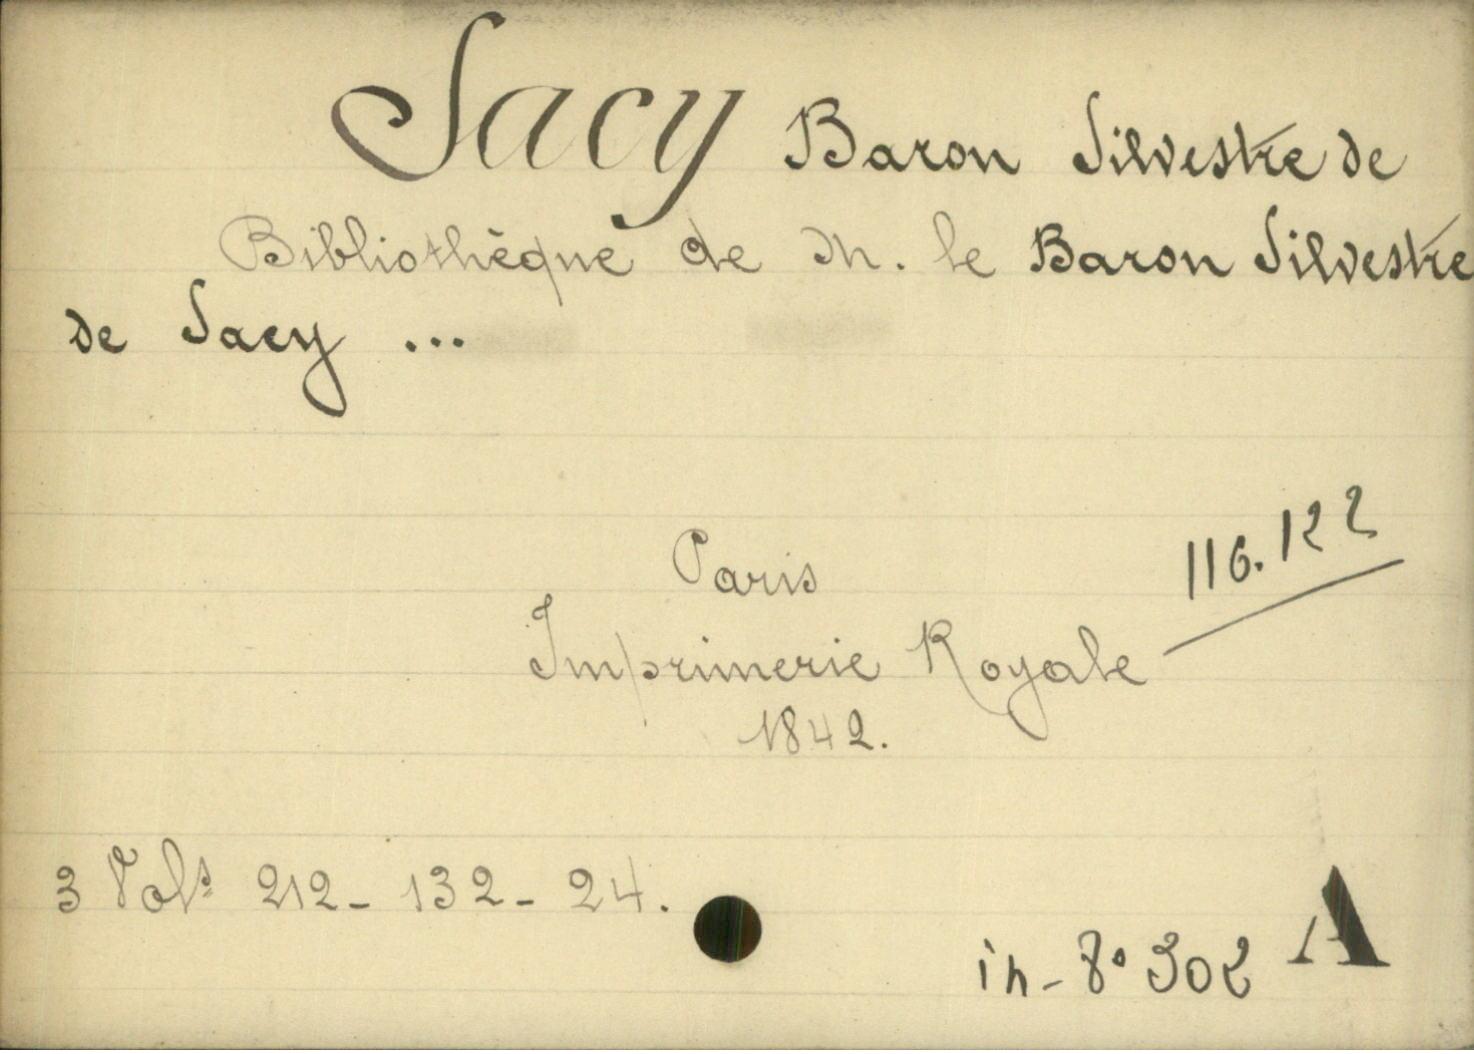 Sacy Baron Silvestre de
Bibliothèque de M. le Baron Silvestre
de Sacy ...
116.122
Paris
Imprimerie Royale
1842.
3 Vols 212 - 132 - 24.
in-8° 302 A